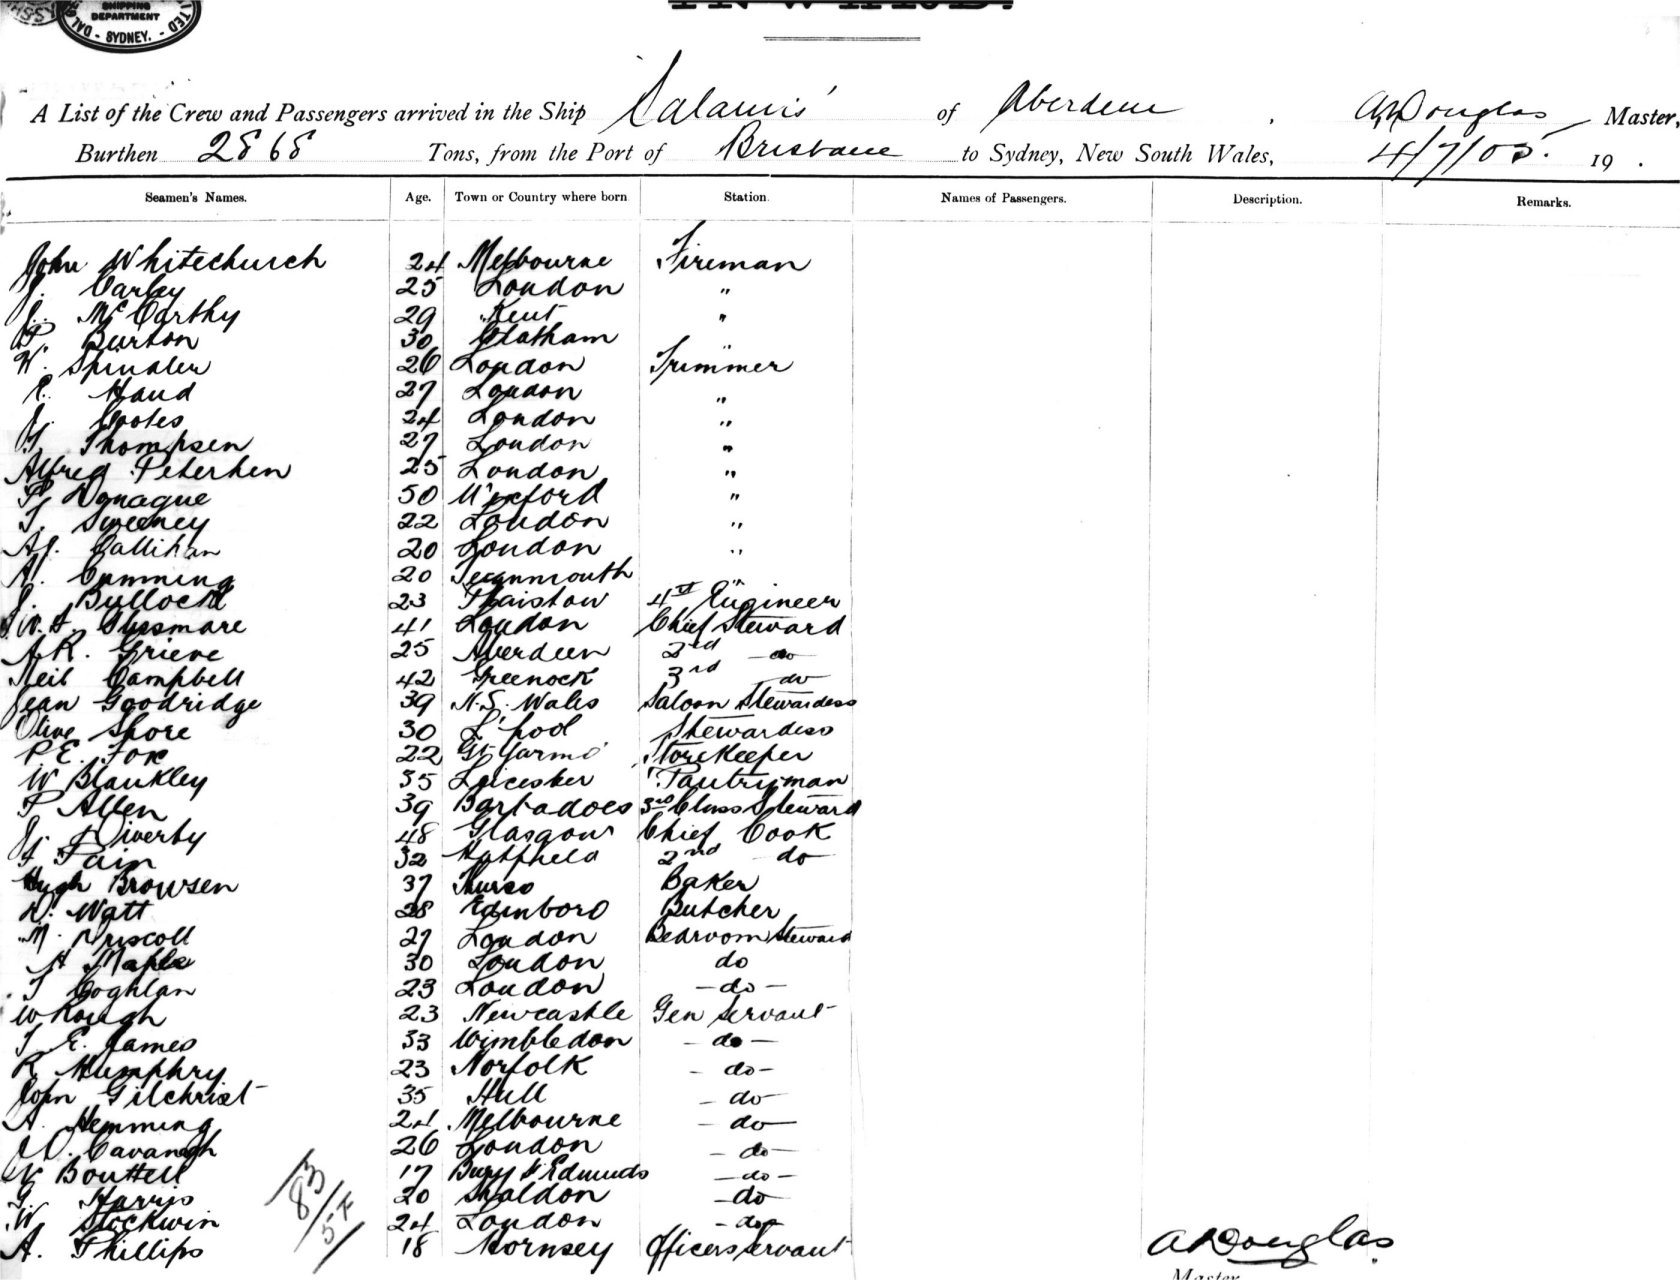 SHIPPING
DEPARTMENT
SYDNEY.
A List of the Crew and Passengers arrived in the Ship Salamis of Aberdeen, A Douglas Master,
Burthen 2868 Tons, from the Port of Brisbane to Sydney, New South Wales, 4/7/05. 19 .
Seamen's Names. Age. Town or Country where born Station. Names of Passengers. Description. Remarks.
John Whitechurch 24 Melbourne Fireman
J. Carley 25 London "
J. McCarthy 29 Kent "
P. Burton 30 Chatham "
W. Spindler 26 London Trimmer
E. Hand 27 London "
J. Cootes 24 London "
G. Thompsen 27 London "
Alfred Peterken 25 London "
P. Donague 50 Wexford "
T. Sweeney 22 London "
A.J. Callihan 20 London "
A. Cumming 20 "
J. Bullock 23 Plaistow 4th Engineer
W.F. Gussmare 41 London Chief Steward
A.R. Grieve 25 Aberdeen 2nd do
Neil Campbell 42 Greenock 3rd do
Jean Goodridge 39 N.S. Wales Saloon Stewardess
Olive Shore 30 L'pool Stewardess
P.E. Fox 22 Gt Yarmo Storekeeper
W Blankley 35 Leicester Pantryman
P Allen 39 Barbadoes 3rd Class Steward
J. 48 Glasgow Chief Cook
F Pain 32 Hatfield 2nd do
Hugh Browsen 37 Thurso Baker
D. Watt 28 Edinboro Butcher
M. Driscoll 27 London Bedroom Steward
H Maple 30 London do
T Coghlan 23 London - do -
W Rough 23 Newcastle Gen Servant
T. E. James 33 Wimbledon - do -
R Humphry 23 Norfolk - do -
John Gilchrist 35 Hull - do -
A. Hemming 24 Melbourne - do -
W. Cavanagh 26 London - do -
W Bouttell 17 Bury St Edmunds - do -
G Harris 20 Shaldon - do
W Stockwin 24 London - do -
A. Phillips 18 Hornsey Officers Servant
83
57
A Douglas
Master